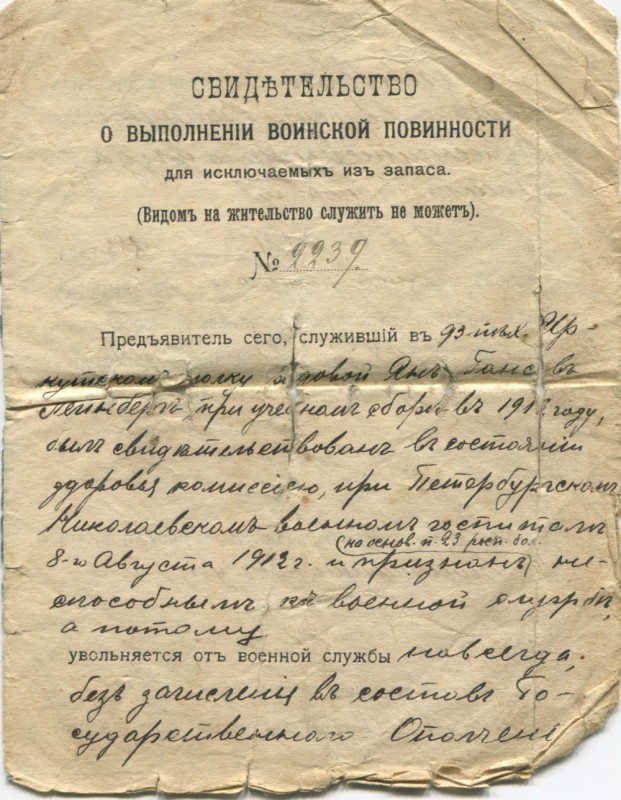 СВИДѢТЕЛЬСТВО
О ВЫПОЛНЕНІИ ВОИНСКОЙ ПОВИННОСТИ
для исключаемыхъ изъ запаса.
(Видомъ на жительство служить не можетъ).
№ 2239.
Предъявитель сего, служившій въ 93 пѣх. Ир-
кутскомъ полку рядовой Янъ Гансовъ
при учебномъ сборѣ въ 1912 году,
былъ свидѣтельствованъ въ состояніи
здоровья комиссіею, при Петербургскомъ
Николаевскомъ военномъ госпиталѣ
(на основ. п. 23 росп. бол.)
8-го Августа 1912 г. и признанъ не-
способнымъ къ военной службѣ,
а потому
увольняется отъ военной службы навсегда,
безъ зачисленія въ составъ Го-
сударственнаго Ополченія